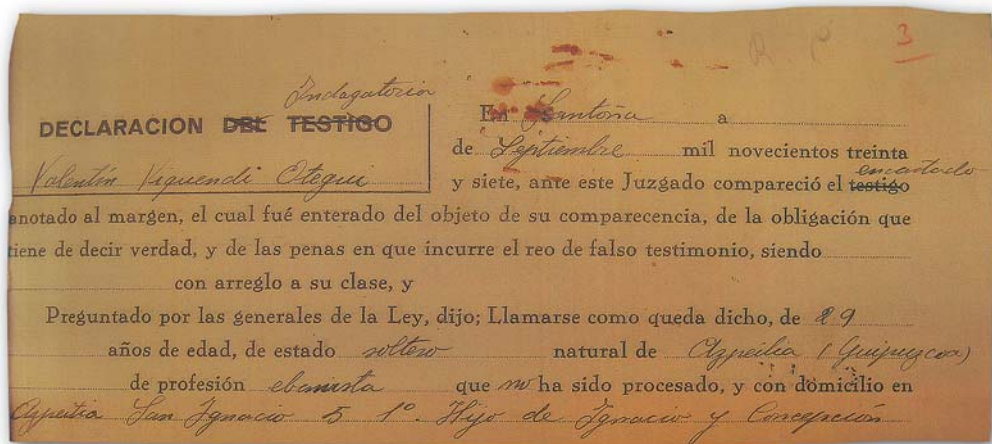 R. P 3
Indagatoria
DECLARACION DEL TESTIGO
Valentín Yiquendi Otegui
En Santoña a
de Septiembre mil novecientos treinta
encartado
y siete, ante este Juzgado compareció el testigo
anotado al margen, el cual fué enterado del objeto de su comparecencia, de la obligación que
tiene de decir verdad, y de las penas en que incurre el reo de falso testimonio, siendo
con arreglo a su clase, y
Preguntado por las generales de la Ley, dijo; Llamarse como queda dicho, de 29
años de edad, de estado soltero natural de Azpeitia (Guipuzcoa)
de profesión ebanista que no ha sido procesado, y con domicilio en
Azpeitia San Ignacio 5 1º. Hijo de Ignacio y Concepción